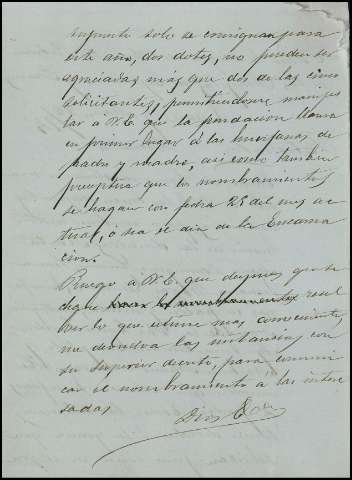 supuesto solo se consignan para
este año, dos dotes, no pueden ser
agraciadas más que dos de las cinco
solicitantes, permitiendome manifes
tar á V.E. que la fundación llama
en primer lugar á las huerfanas de
padre y madre, asi como tambien
preceptua que los nombramientos
se hagan con fecha 25 del mes ac
tual, ó sea el dia de la Encarna
cion.
Ruego á V.E. que despues que se
digne hacer los nombramientos resol
ver lo que estime mas conveniente,
me devuelva las instancias con
su superior decreto, para comuni
car el nombramiento a las intere
sadas
Dios